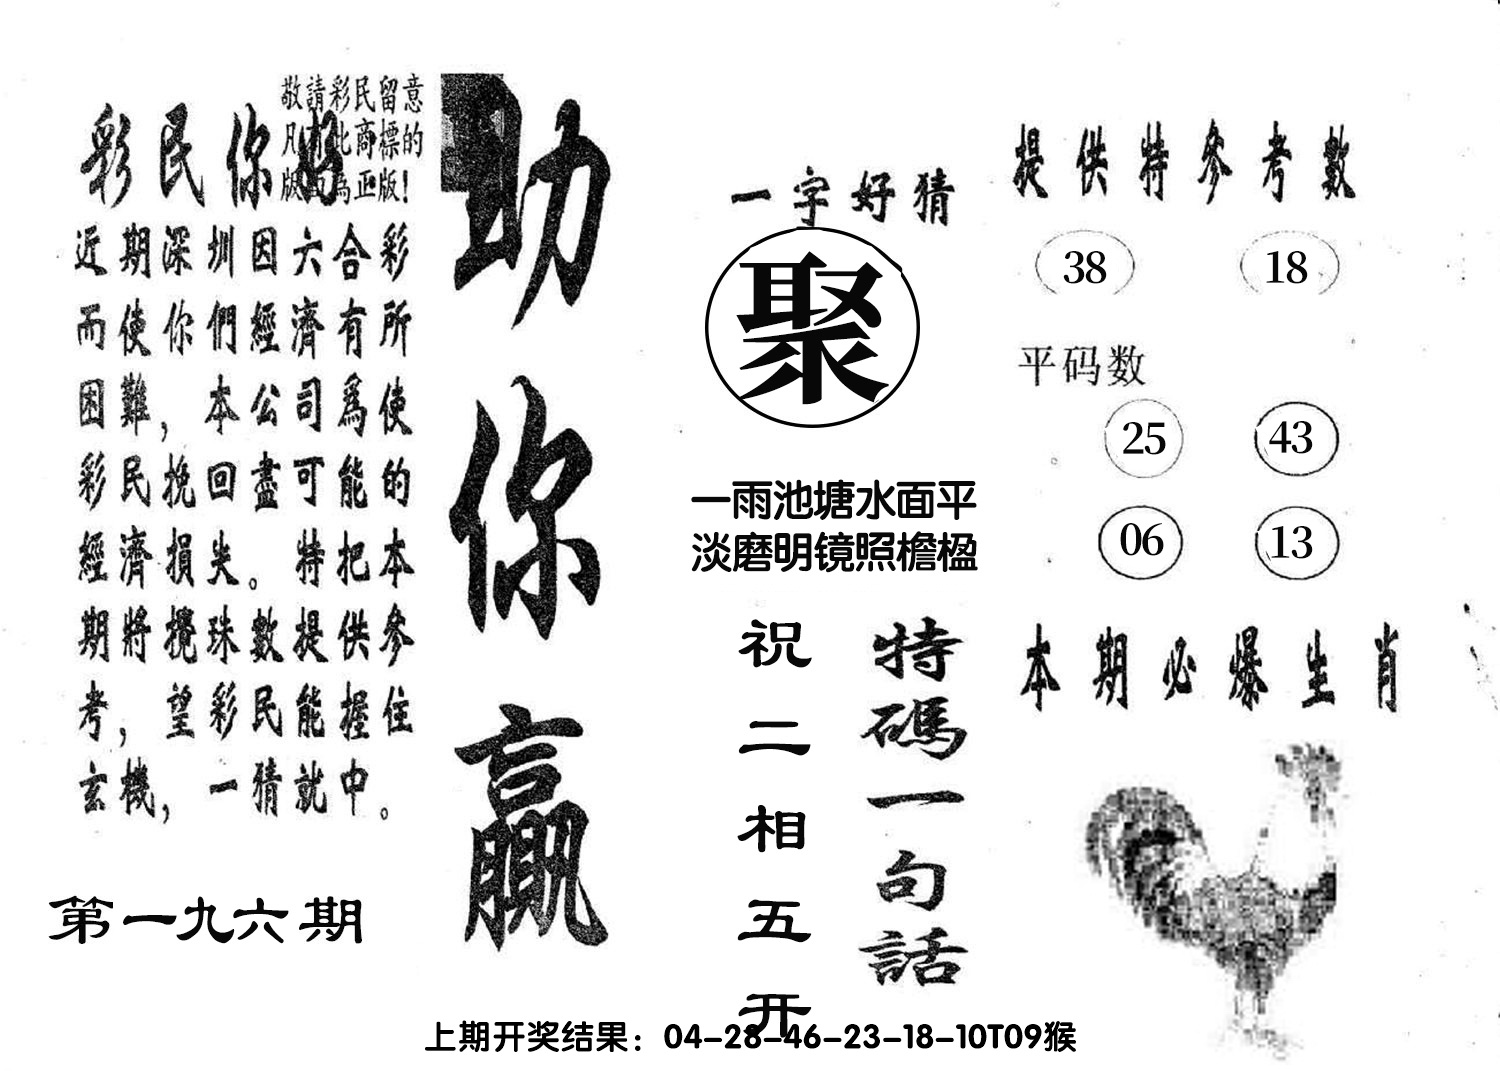 敬請彩民留意
凡有此商標的
版面為正版!
彩民你好
近期深圳因六合彩
而使你們經濟有所
困難，本公司爲使
彩民挽回盡可能的
經濟損失。特把本
期將攪珠數提供參
考，望彩民能握住
玄機，一猜就中。
第一九六期
助你贏
一字好猜
聚
一雨池塘水面平
淡磨明镜照檐楹
特碼一句話
祝二相五开
提供特參考數
38 18
平码数
25 43
06 13
本期必爆生肖
上期开奖结果：04-28-46-23-18-10T09猴